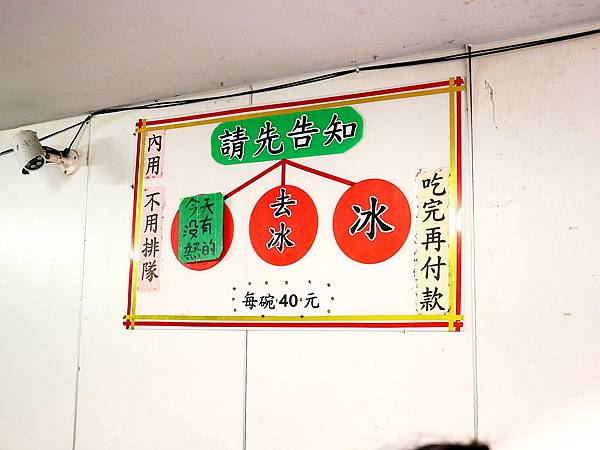 請先告知
內用 不用排隊
今天
没有
热的
去冰
冰
吃完再付款
每碗 40 元